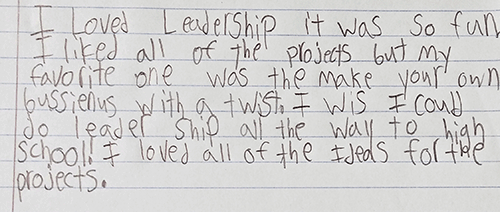 I Loved LeaderShip it was so fun
I liked all of the projects but my
favorite one was the make your own
bussienus with a twist. I wis I coud
do leader Ship all the wall to high
school! I loved all of the Ideas for the
projects.